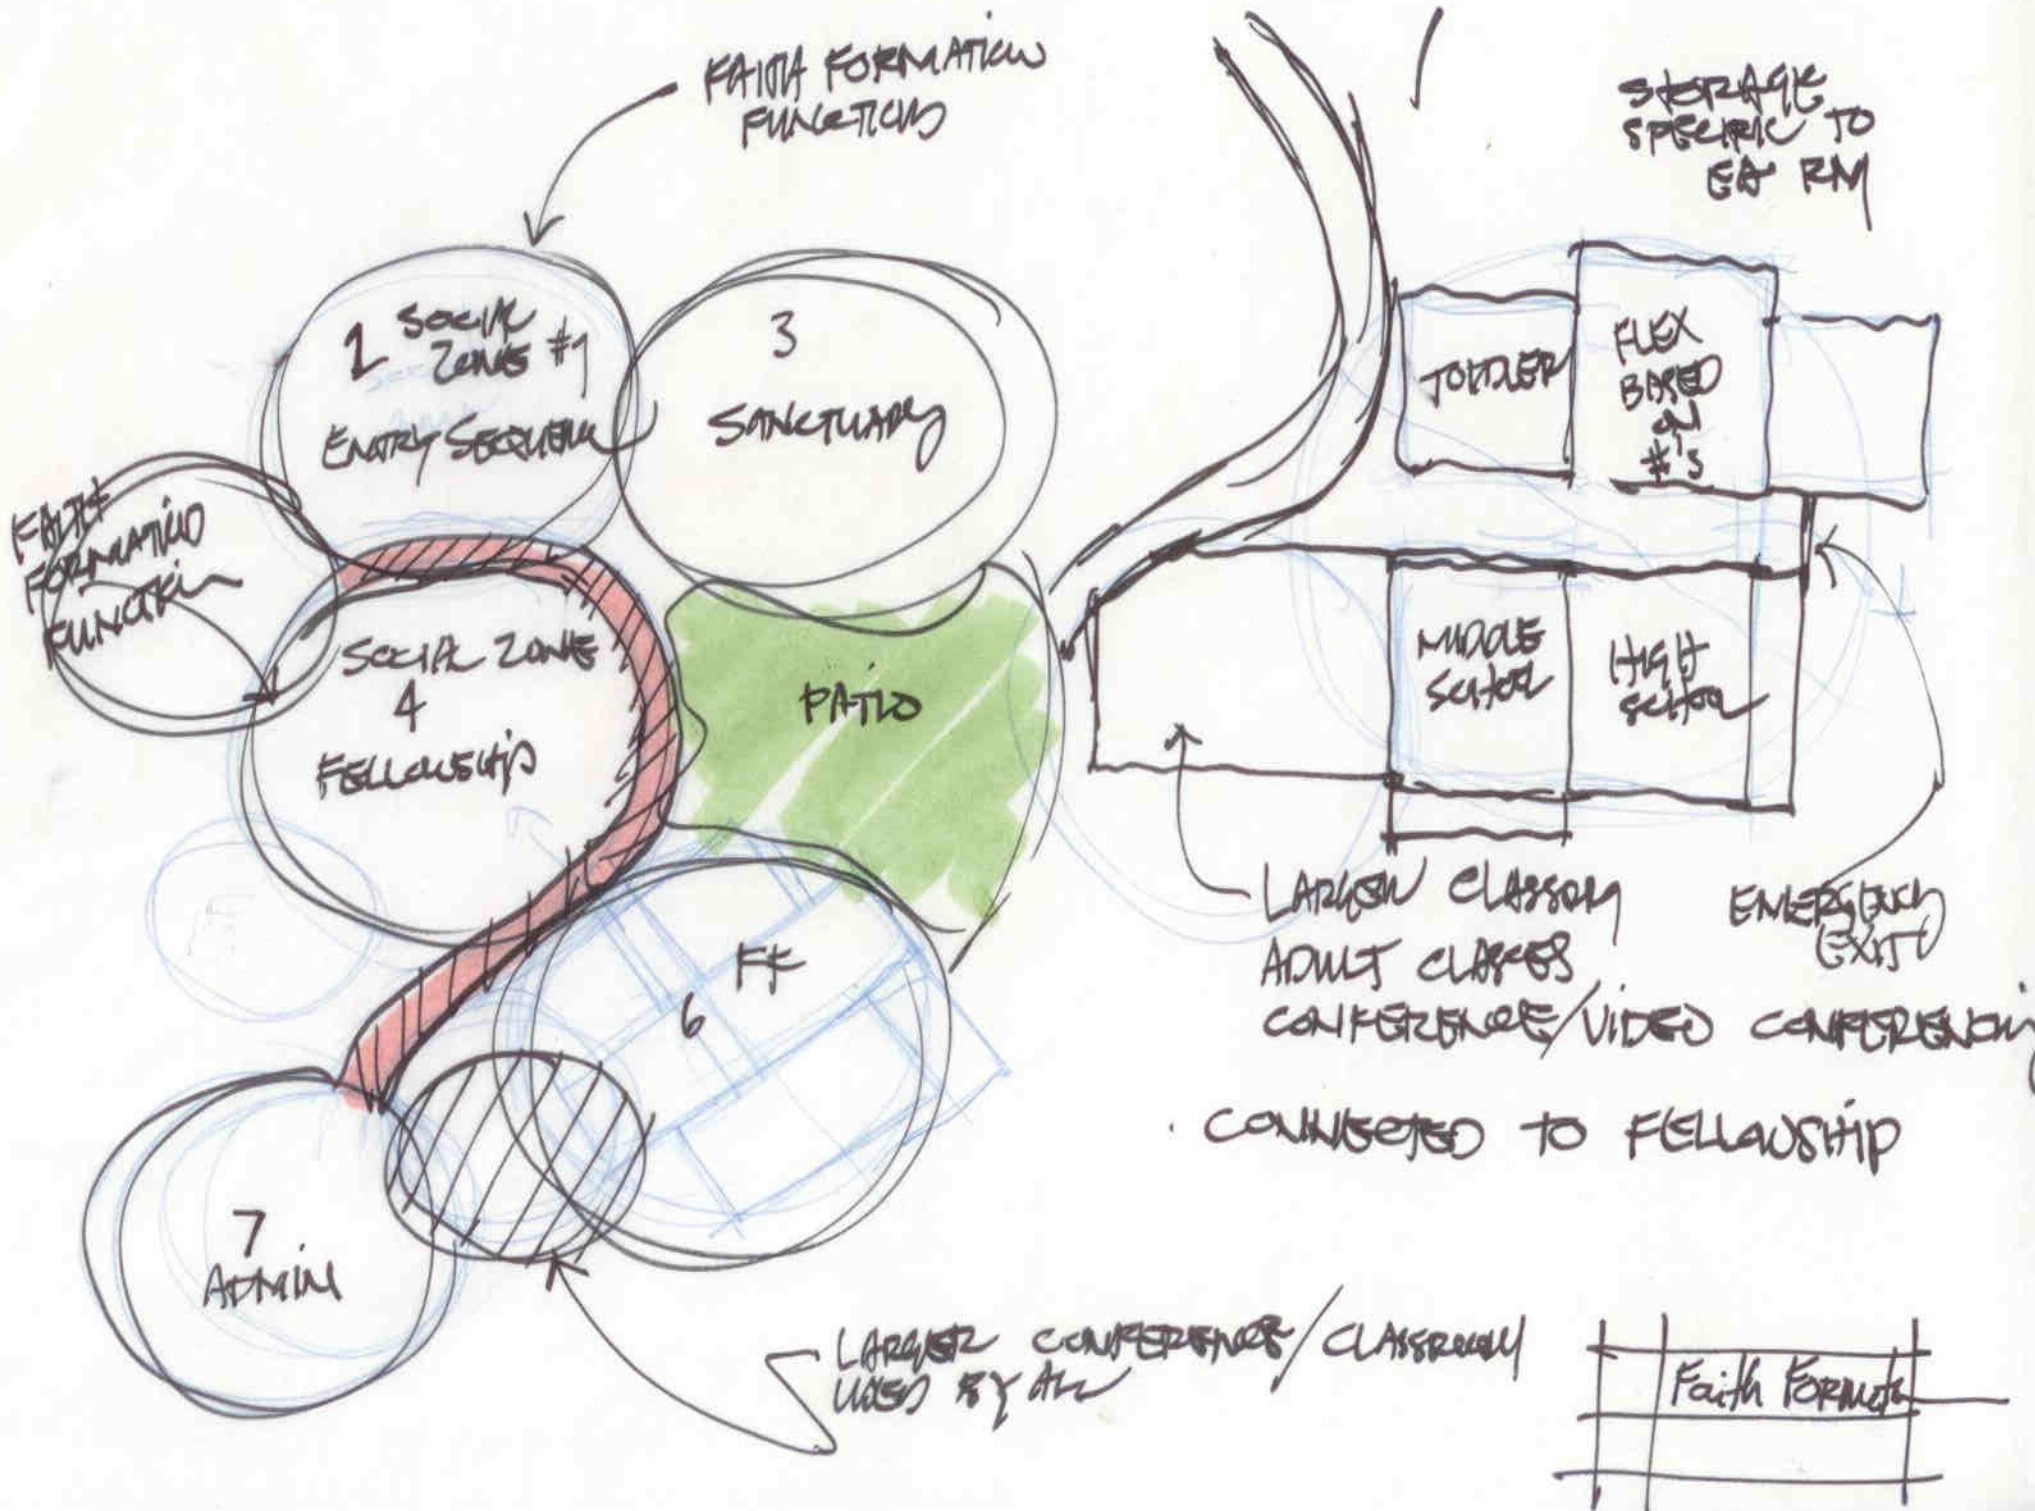 FAITH FORMATION
FUNCTIONS
STORAGE
SPECIFIC TO
EA RM
1 SOCIAL
ZONE #1
ENTRY SEQUENCE
3
SANCTUARY
TODDLER
FLEX
BASED
ON
#'S
FAITH
FORMATION
FUNCTION
SOCIAL ZONE
4
FELLOWSHIP
PATIO
MIDDLE
SCHOOL
HIGH
SCHOOL
FF
6
LARGER CLASSRM
ADULT CLASSES
CONFERENCE/VIDEO CONFERENCING
EMERGENCY
EXIT
· CONNECTED TO FELLOWSHIP
7
ADMIN
LARGER CONFERENCE/CLASSROOM
USED BY ALL
Faith Formatn